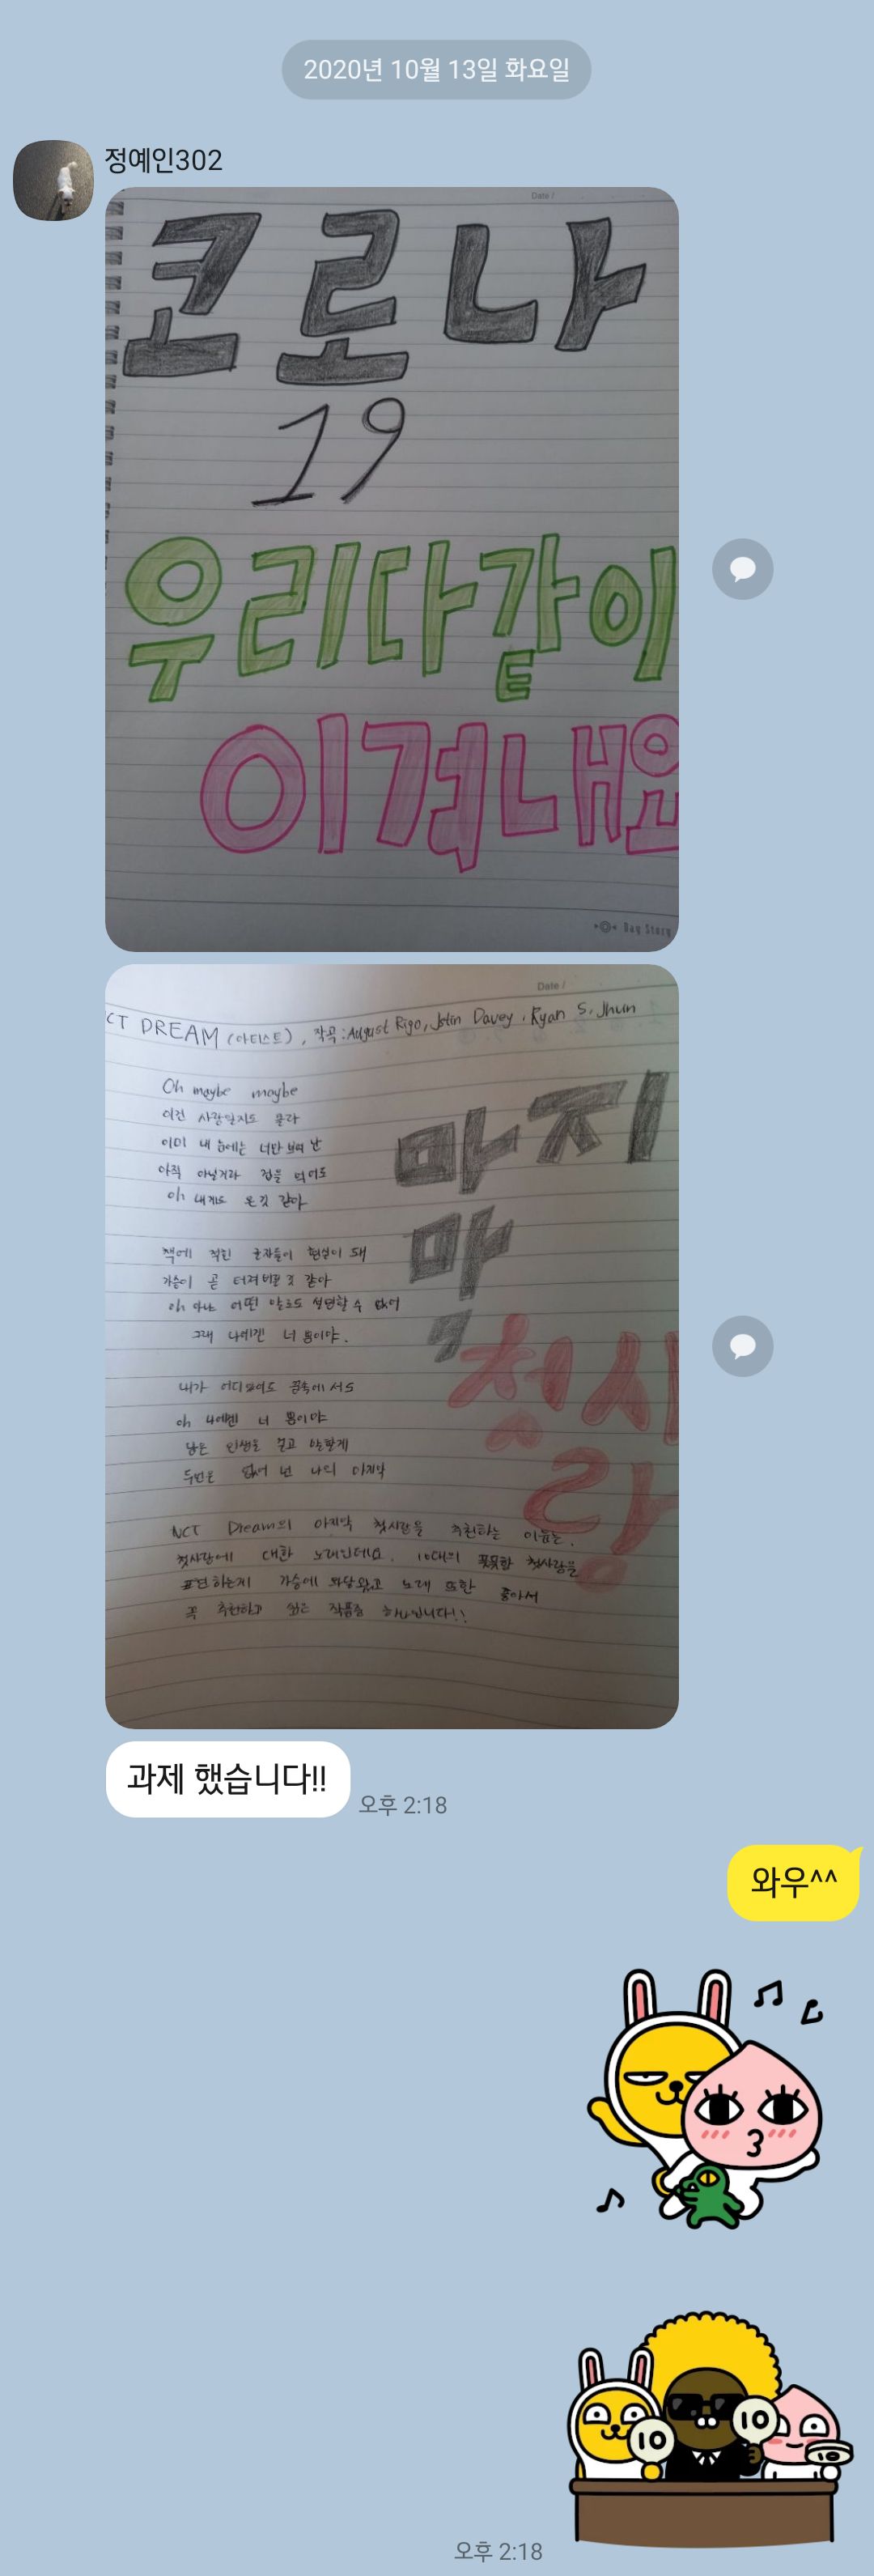 2020년 10월 13일 화요일
정예인302
Date /
코로나
19
우리다같이
이겨내요
Day Story
Date /
CT DREAM (아티스트), 작곡 : August Rigo, Jstin Davey, Ryan S. Jhun
Oh maybe maybe
이건 사랑일지도 몰라
이미 내 눈에는 너만 보여 난
아직 아닐거라 겁을 먹어도
oh 내게도 온 것 같아
책에 적힌 글자들이 현실이 돼
가슴이 곧 터져버릴 것 같아
oh 아냐 어떤 말로도 설명할 수 없어
그래 나에겐 너 뿐이야.
내가 어디 있어도 꿈속에서도
oh 나에겐 너 뿐이야
남은 인생을 걸고 말할게
두번은 없어 넌 나의 마지막
마지
막
첫사
랑
NCT Dream의 마지막 첫사랑을 추천하는 이유는.
첫사랑에 대한 노래인데요. 10대의 풋풋한 첫사랑을
표현하는게 가슴에 와닿았고 노래 또한 좋아서
꼭 추천하고 싶은 작품중 하나입니다!!
과제 했습니다!!
오후 2:18
와우^^
10
10
10
오후 2:18